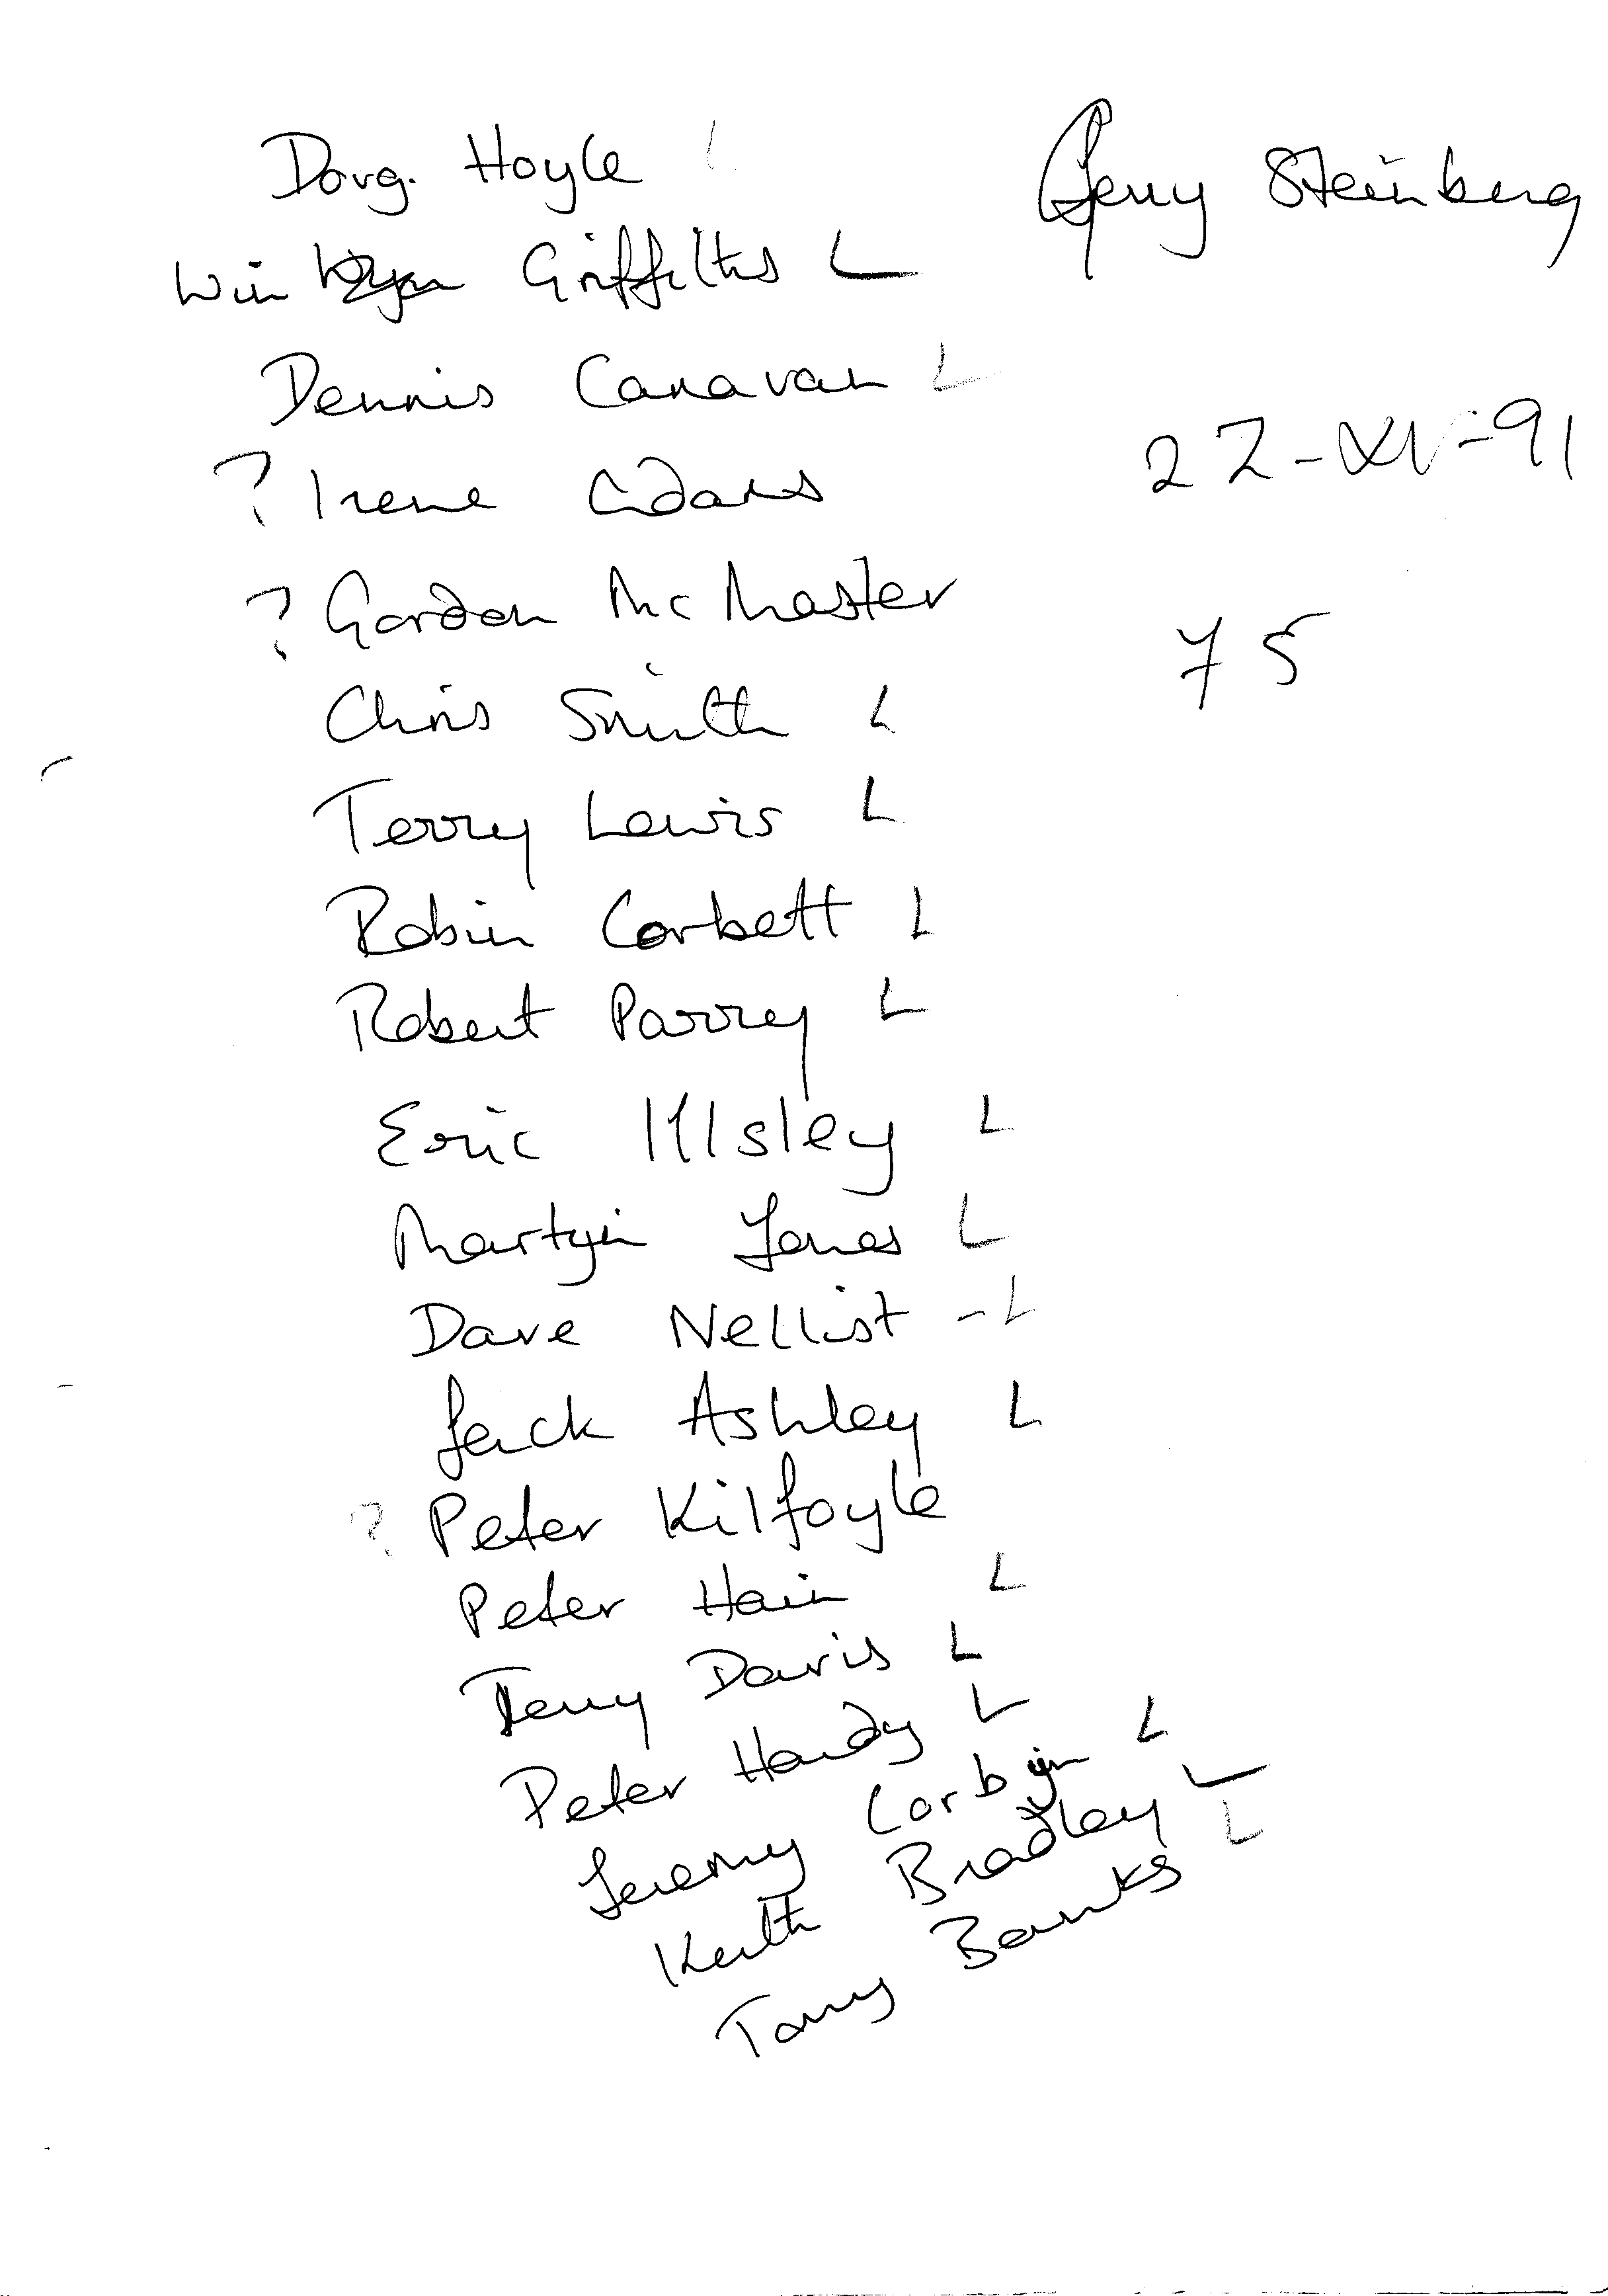 Doug. Hoyle L
Gerry Steinberg
Win Griffiths L
Dennis Canavan L
? Irene Adams
22-XI-91
? Gordon McMaster
75
Chris Smith L
Terry Lewis L
Robin Corbett L
Robert Parry L
Eric Illsley L
Martyn Jones L
Dave Nellist - L
Jack Ashley L
? Peter Kilfoyle
Peter Hain L
Terry Davis L
Peter Hardy L
Jeremy Corbyn L
Keith Bradley L
Tony Banks L